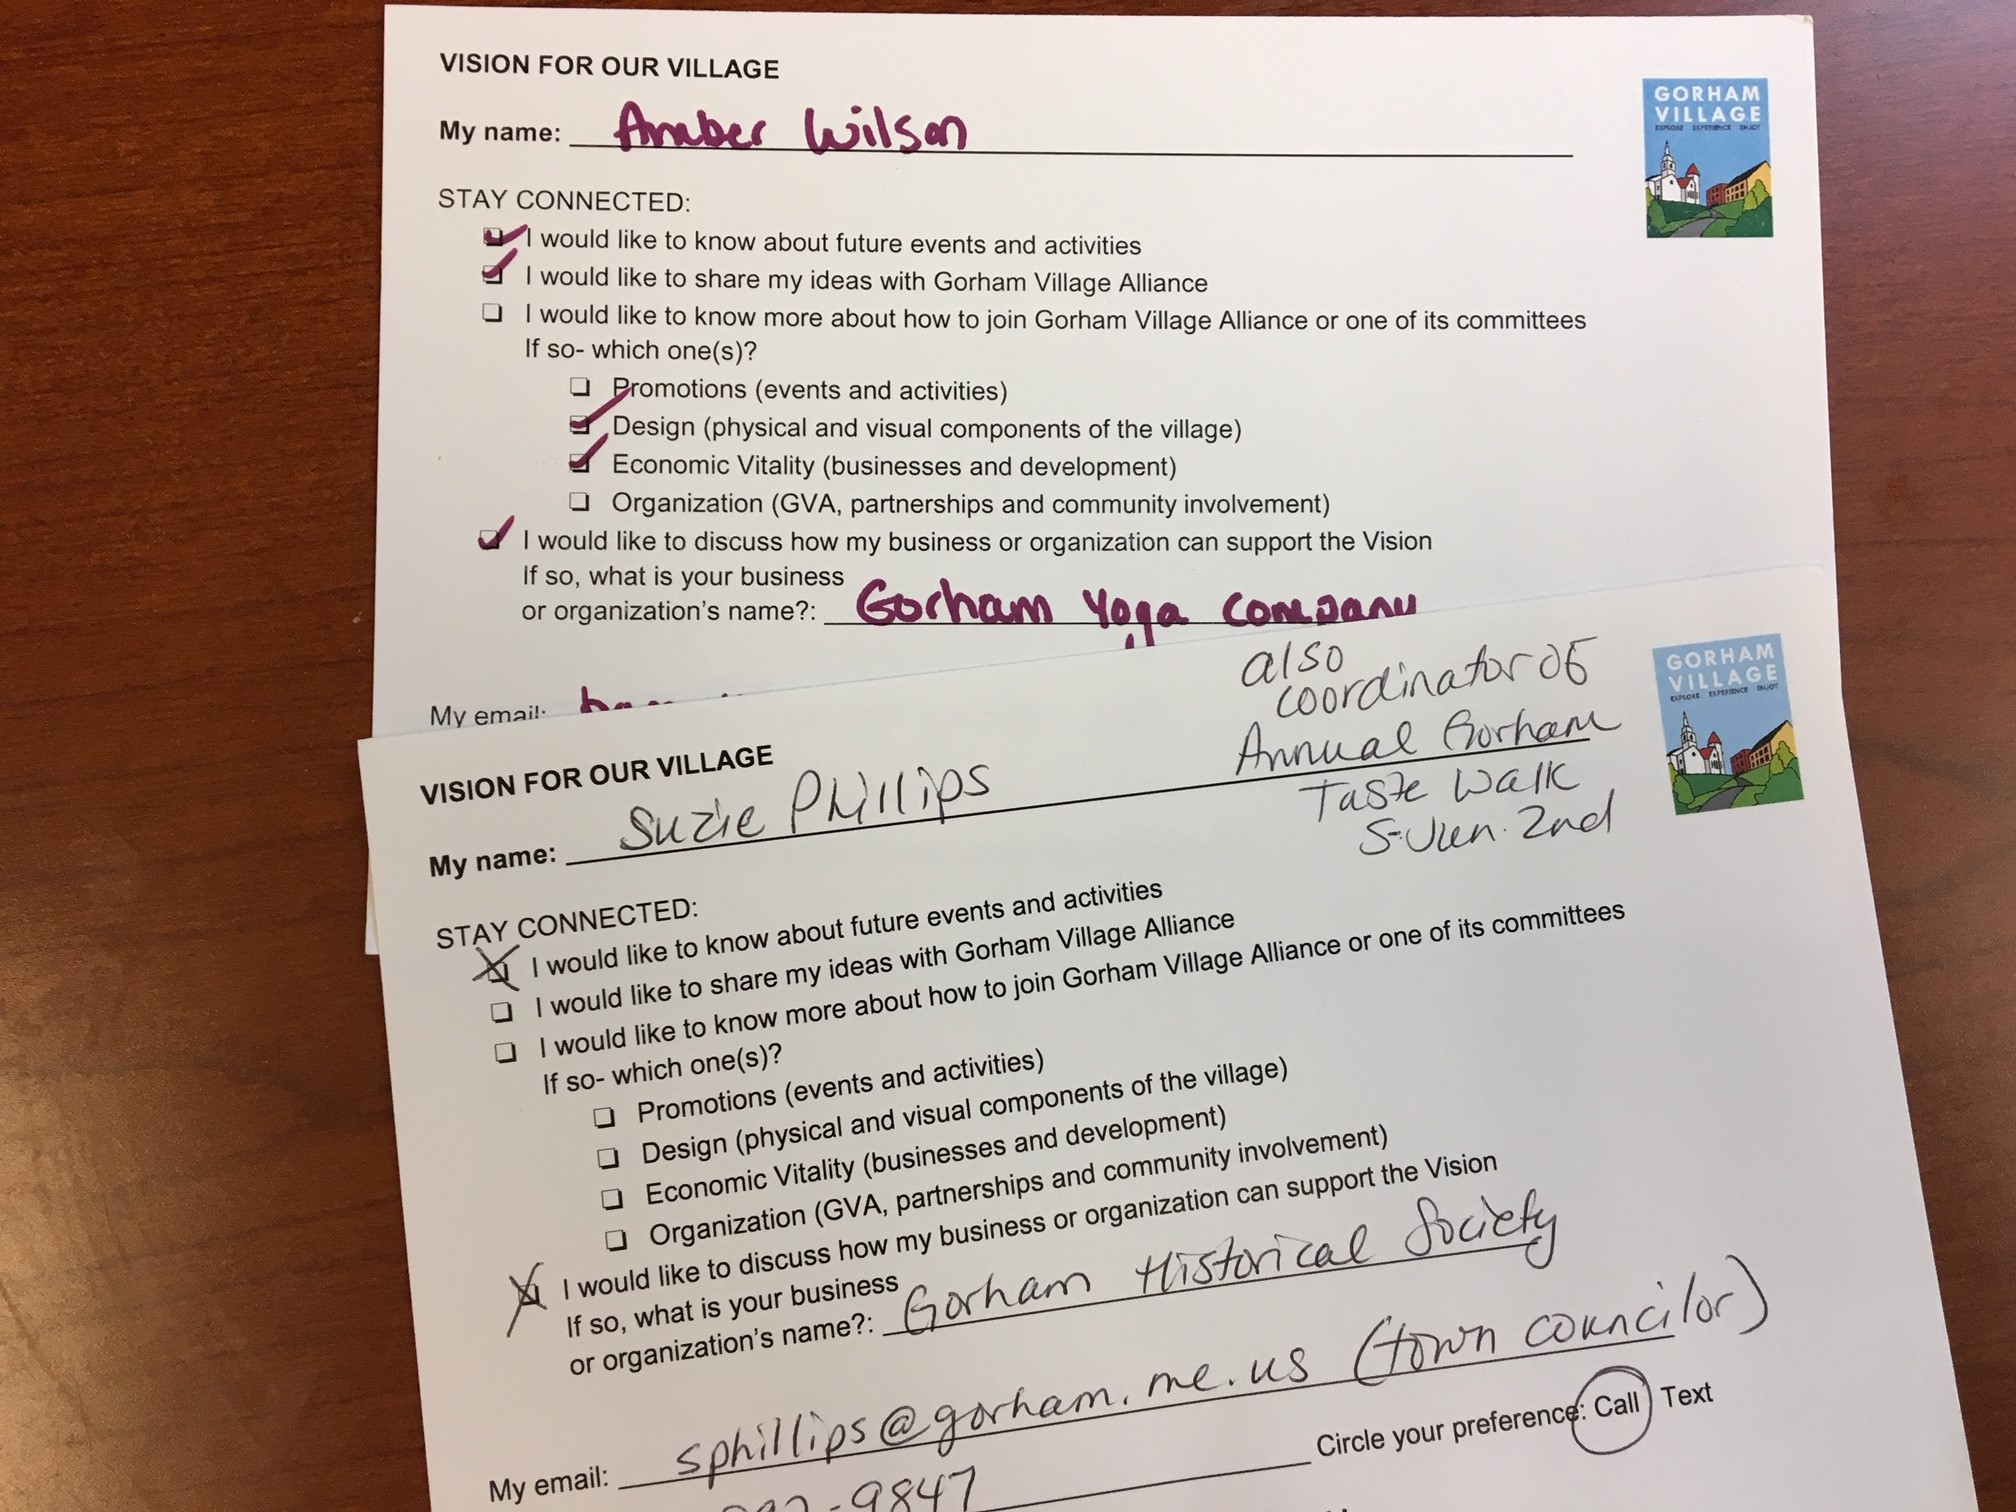 VISION FOR OUR VILLAGE
My name: Amber Wilson
GORHAM
VILLAGE
EXPLORE EXPERIENCE ENJOY
STAY CONNECTED:
I would like to know about future events and activities
I would like to share my ideas with Gorham Village Alliance
I would like to know more about how to join Gorham Village Alliance or one of its committees
If so- which one(s)?
Promotions (events and activities)
Design (physical and visual components of the village)
Economic Vitality (businesses and development)
Organization (GVA, partnerships and community involvement)
I would like to discuss how my business or organization can support the Vision
If so, what is your business
or organization's name?: Gorham Yoga Company
My email:
also
coordinator of
Annual Gorham
Taste Walk
VISION FOR OUR VILLAGE
My name: Suzie Phillips
GORHAM
VILLAGE
EXPLORE EXPERIENCE ENJOY
2nd
STAY CONNECTED:
I would like to know about future events and activities
I would like to share my ideas with Gorham Village Alliance
I would like to know more about how to join Gorham Village Alliance or one of its committees
If so- which one(s)?
Promotions (events and activities)
Design (physical and visual components of the village)
Economic Vitality (businesses and development)
Organization (GVA, partnerships and community involvement)
I would like to discuss how my business or organization can support the Vision
If so, what is your business
or organization's name?: Gorham Historical Society
My email: sphillips@gorham.me.us (town councilor)
Circle your preference: Call Text
-9847